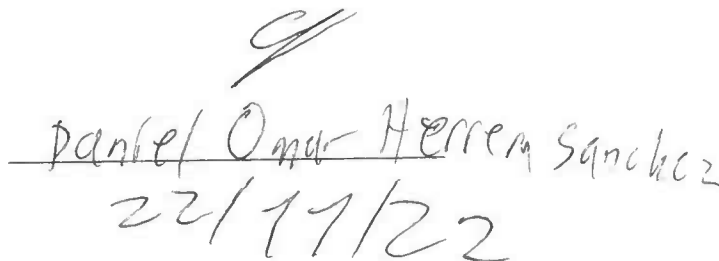 Daniel Omar Herrera Sanchez
22/11/22